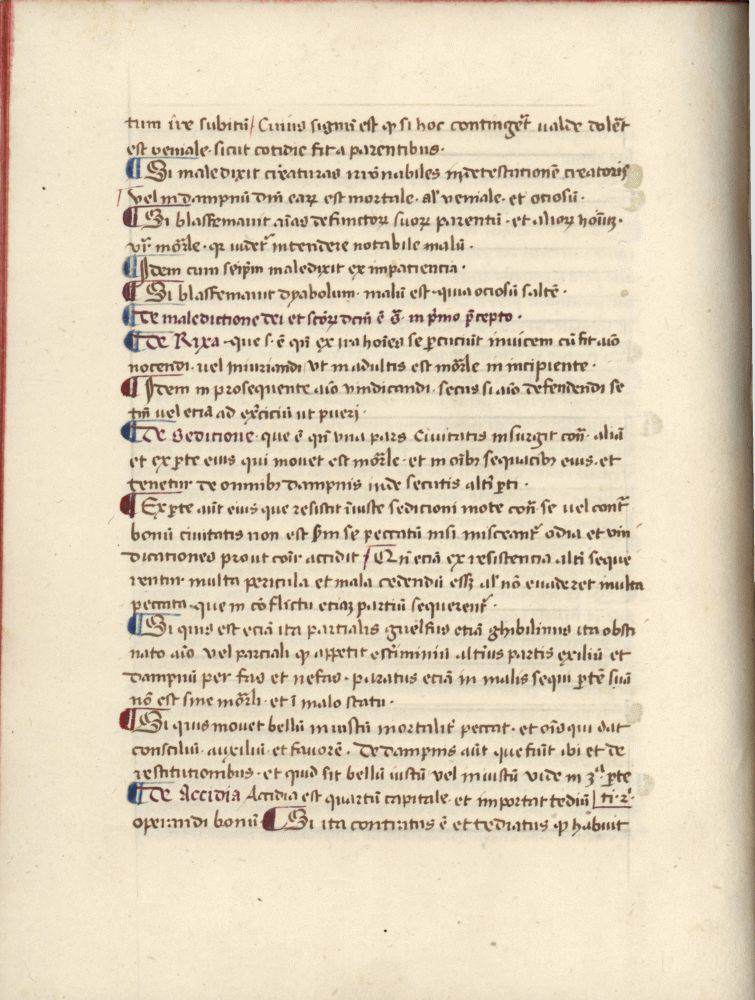 tum ire subitū / Cuius signū est ꝙ si hoc contingeret̄ ualde dolēt
est veniale · sicut cotidie fit a parentibus ·
¶ Si maledixit creaturas irrōnabiles in detestationē creatoris
vel in dampnū dnī earꝝ est mortale · al' veniale · et ociosū ·
¶ Si blasfemauit aīas defunctorꝝ suorꝝ parentū · et aliorꝝ hoīuꝫ ·
vr̄ mōrle · qꝛ uidet̄ intendere notabile malū ·
¶ Idem cum seip̄m maledixit ex impaciencia ·
¶ Si blasfemauit dyabolum · malū est · quia ociosū saltē ·
¶ De maledictione dei et scōrꝝ dcm̄ ē s̄ · in p̄mo p̄cepto ·
¶ De Rixa · que s · ē qn̄ ex ira hoīes se percuciūt inuicem cū fit aīo
nocendi · uel iniuriandi · vt in adultis est mōrle in incipiente ·
¶ Idem in prosequente aīo vindicandi · secus si aīo defendendi se
tm̄ uel etiā ad ex̄ciciū ut pueri ·
¶ De Sedicione · que ē qn̄ vna pars Ciuitatis insurgit con̄ · aliā
et ex ꝑte eius qui mouet est mōrle · et in oībꝫ sequacibꝫ eius · et
tenetur de omnibꝫ dampnis inde secutis alt̄i ꝑti ·
¶ Ex ꝑte aūt eius que resistit iniuste sedicioni mote con̄ · se uel cont̄
bonū ciuitatis non est ꝑ se peccatū nisi misceant̄ odia et vin
dicationes prout cōīr accidit / Qn̄ etiā ex resistencia alt̄i seque
rentur multa pericula et mala cedendū esset al' nō euaderet multa
peccata · que in cōflictu etiaꝫ partiū sequerent̄ ·
¶ Si quis est etiā ita parcialis guelfus etiā ghibilinus ita obsti
nato aīo vel parciali ꝙ appetit ext̄miniū alterius partis exiliū et
dampnū per fas et nefas · paratus etiā in malis sequi ꝑtē suā
nō est sine mōrli · et ī malo statu ·
¶ Si quis mouet bellū iniustū mortalit̄ peccat · et oēs qui dāt
consiliū · auxiliū et fauorē · De dampnis aūt que fiūt ibi et de
restitutionibus · et quid sit bellū iustū vel iniustū vide in 3ᵃ ꝑte
¶ De Accidia Accidia est quartū capitale · et importat tediū | ti · 2 ·
operandi bonū ¶ Si ita contristatus ē et tediatus ꝙ habuit